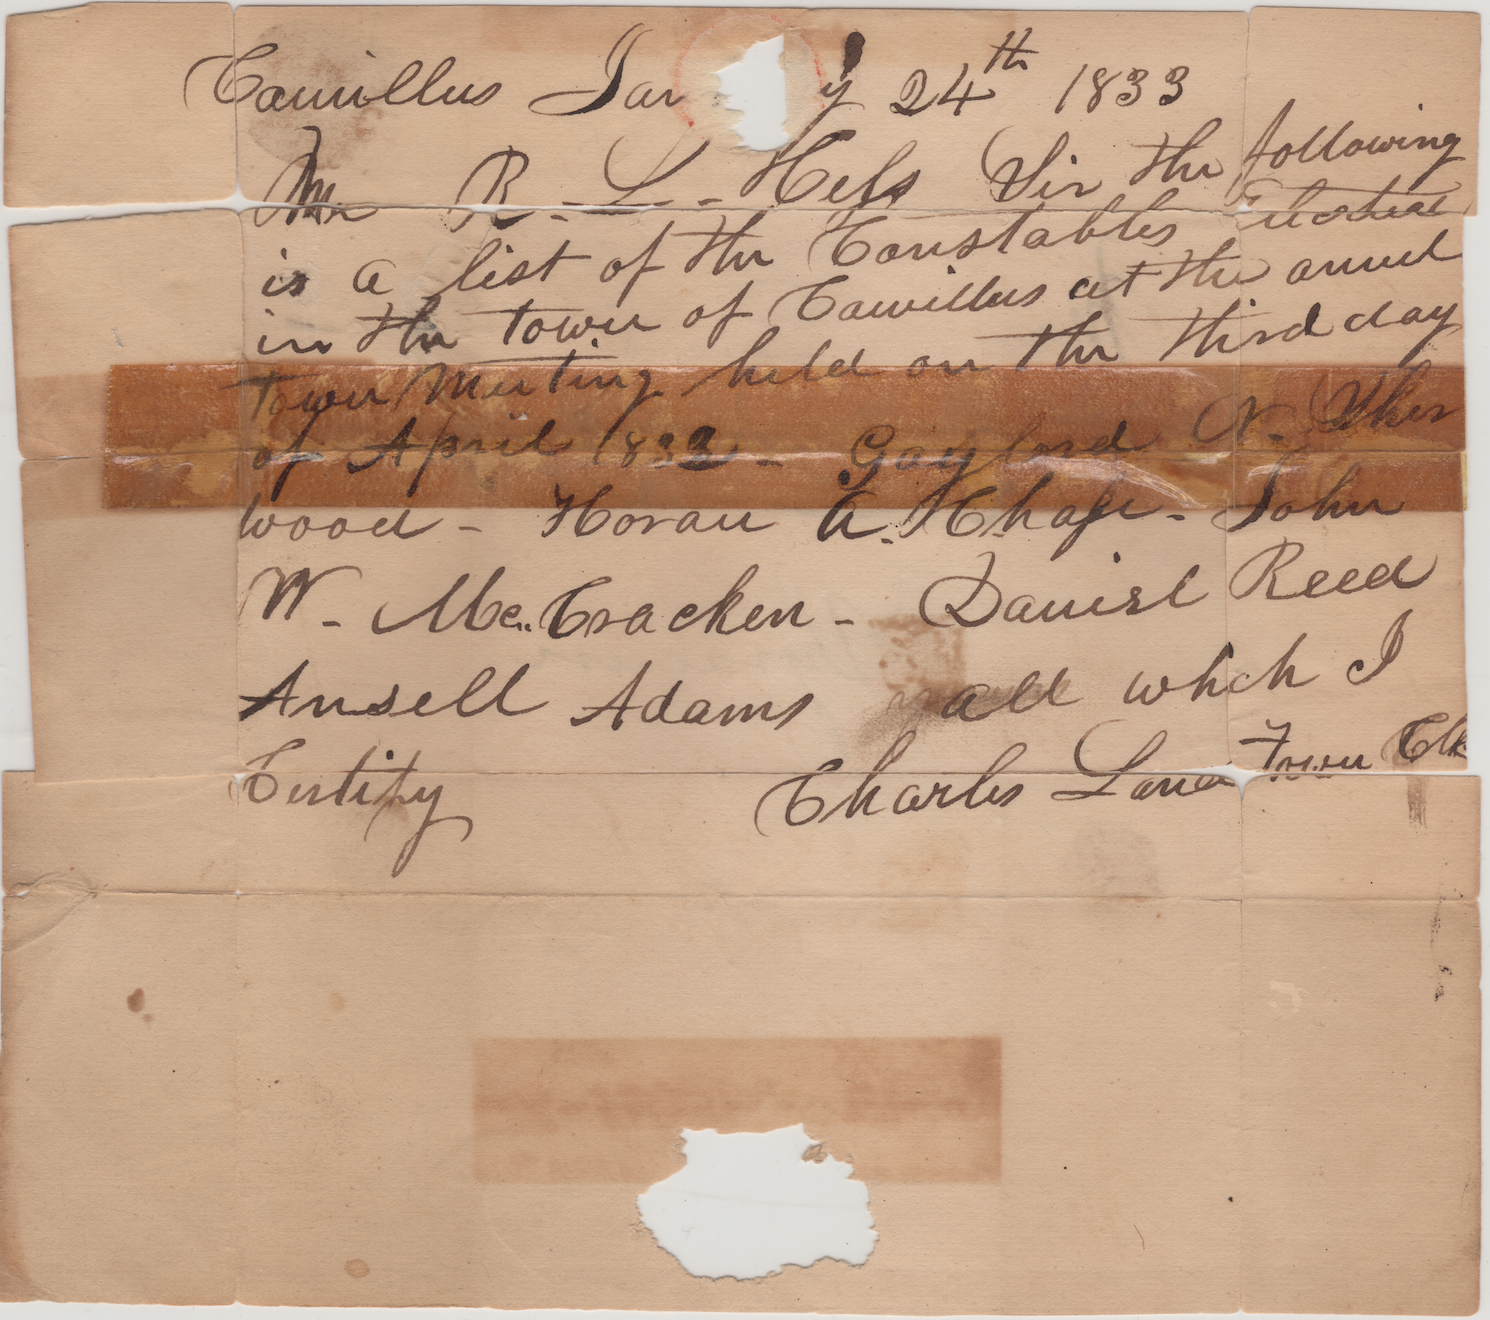 Camillus Jan y 24th 1833
Mr R. L. Hess Sir the following
is a list of the Constables Elected
in the town of Camillus at the anuel
town Meeting held on the third day
of April 1832 - Gaylord N. Sher
wood - Horau A. Chase - John
W. Mc.Cracken - Daniel Reed
Ansell Adams all which I
Certify Charles Land Town Clk